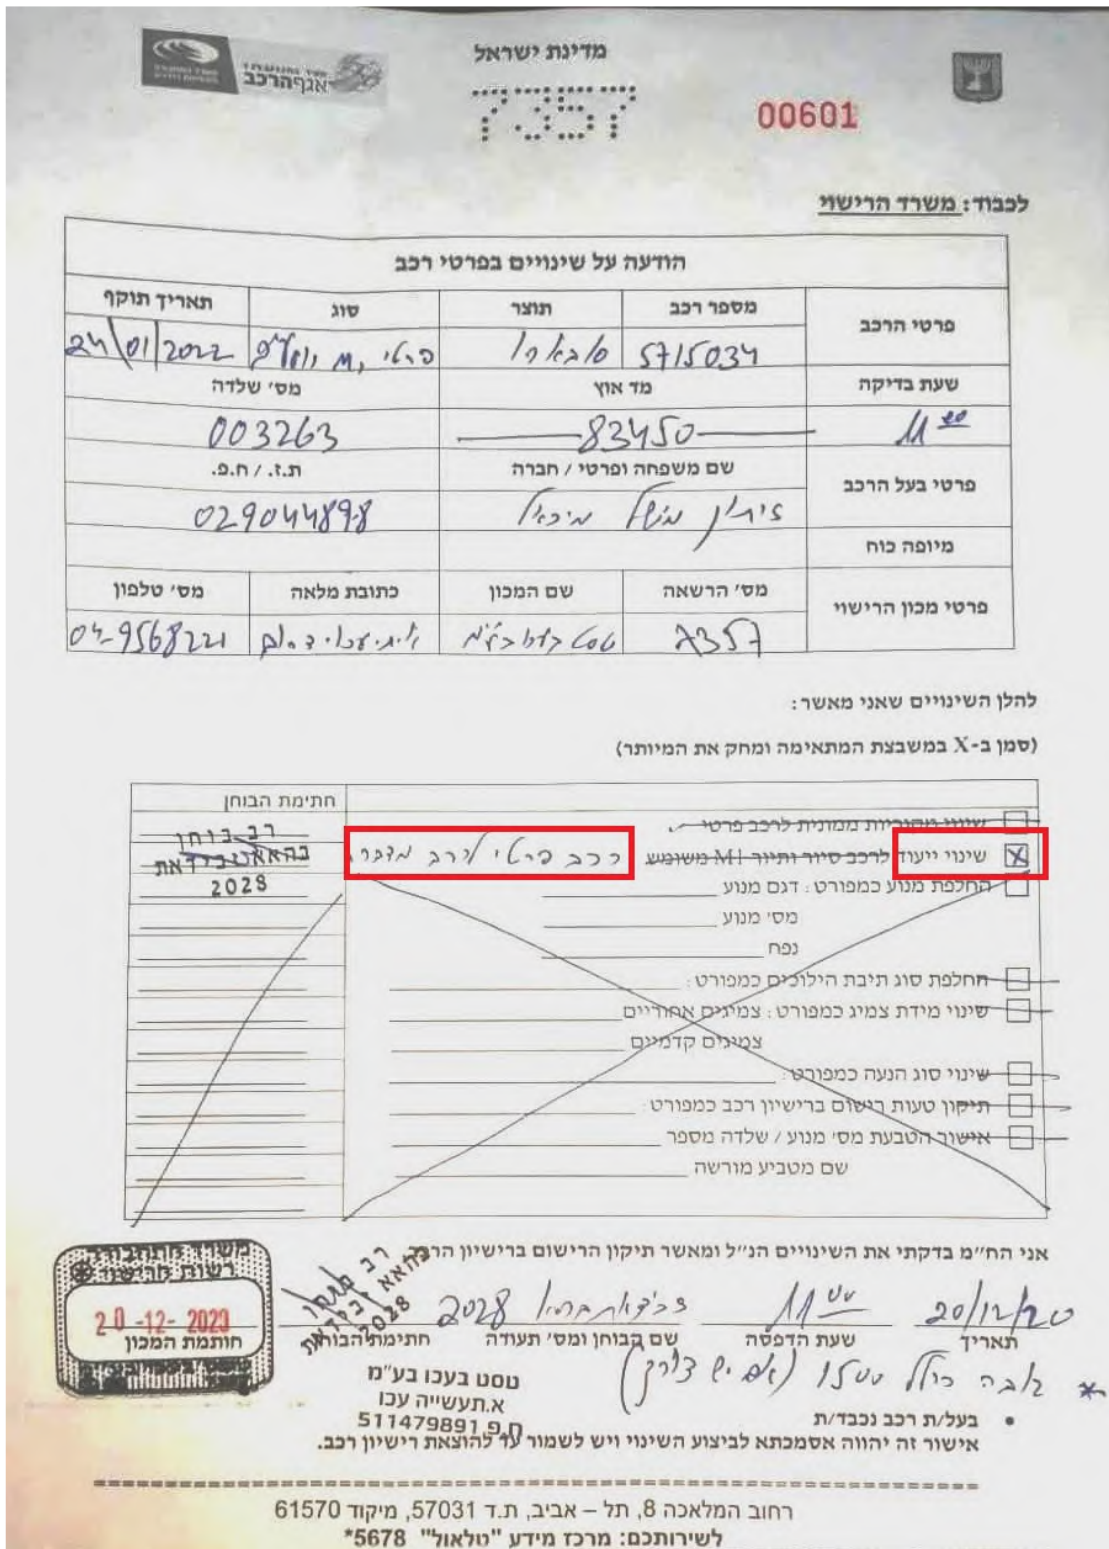 מדינת ישראל
אגף הרכב
7357
00601
לכבוד: משרד הרישוי
הודעה על שינויים בפרטי רכב
פרטי הרכב מספר רכב תוצר סוג תאריך תוקף
5715034 סובארו פרטי 24/01/2022
שעת בדיקה מד אוץ מס' שלדה
11 00 83450 003263
פרטי בעל הרכב שם משפחה ופרטי / חברה ת.ז. / ח.פ.
מישל מיכאל 029044898
מיופה כוח
פרטי מכון הרישוי מס' הרשאה שם המכון כתובת מלאה מס' טלפון
7357 טסט בעכו בע"מ 04-9568221
להלן השינויים שאני מאשר:
(סמן ב-X במשבצת המתאימה ומחק את המיותר)
חתימת הבוחן
שינוי מקוריות ממונית לרכב פרטי
שינוי ייעוד לרכב סיור ותיור M1 משומש רכב פרטי לרכב מדברי
רב בוחן
2028
החלפת מנוע כמפורט: דגם מנוע
מס' מנוע
נפח
החלפת סוג תיבת הילוכים כמפורט:
שינוי מידת צמיג כמפורט: צמיגים אחוריים
צמיגים קדמיים
שינוי סוג הנעה כמפורט:
תיקון טעות רישום ברישיון רכב כמפורט:
אישור הטבעת מס' מנוע / שלדה מספר
שם מטביע מורשה
אני הח"מ בדקתי את השינויים הנ"ל ומאשר תיקון הרישום ברישיון הרכב
20/12/20 11 00 2028
תאריך שעת הדפסה שם הבוחן ומס' תעודה חתימת הבוחן חותמת המכון
רב בוחן
2028
רשות הרישוי
20-12-2020
* גובה כולל 1500 (אם יש צורך)
טסט בעכו בע"מ
א.תעשייה עכו
ח.פ 511479891
• בעל/ת רכב נכבד/ת
אישור זה יהווה אסמכתא לביצוע השינוי ויש לשמור עד להוצאת רישיון רכב.
רחוב המלאכה 8, תל – אביב, ת.ד 57031, מיקוד 61570
לשירותכם: מרכז מידע "טלאול" 5678*